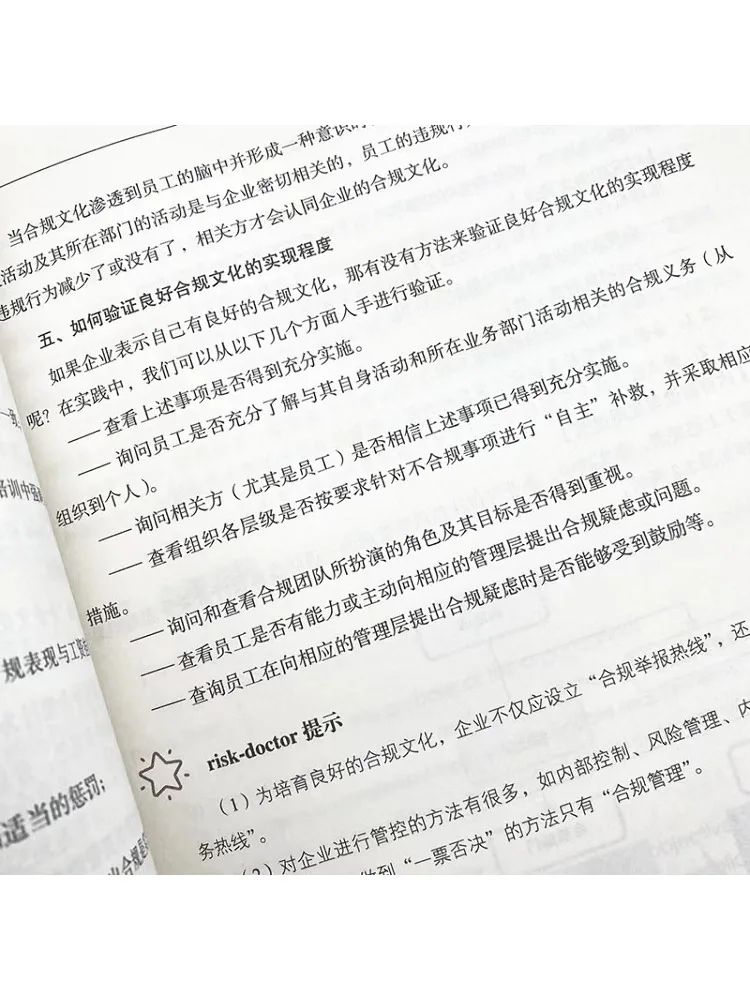 当合规文化渗透到员工的脑中并形成一种意识的
活动及其所在部门的活动是与企业密切相关的，员工的违规行
违规行为减少了或没有了，相关方才会认同企业的合规文化。
五、如何验证良好合规文化的实现程度
如果企业表示自己有良好的合规文化，那有没有方法来验证良好合规文化的实现程度
呢？在实践中，我们可以从以下几个方面入手进行验证。
——查看上述事项是否得到充分实施。
——询问员工是否充分了解与其自身活动和所在业务部门活动相关的合规义务（从
组织到个人）。
——询问相关方（尤其是员工）是否相信上述事项已得到充分实施。
——查看组织各层级是否按要求针对不合规事项进行“自主”补救，并采取相应
措施。
——询问和查看合规团队所扮演的角色及其目标是否得到重视。
——查看员工是否有能力或主动向相应的管理层提出合规疑虑或问题。
——查询员工在向相应的管理层提出合规疑虑时是否能够受到鼓励等。
risk-doctor 提示
（1）为培育良好的合规文化，企业不仅应设立“合规举报热线”，还
务热线”。
（2）对企业进行管控的方法有很多，如内部控制、风险管理、内
做到“一票否决”的方法只有“合规管理”。
培训中强
规表现与工资
适当的惩罚；